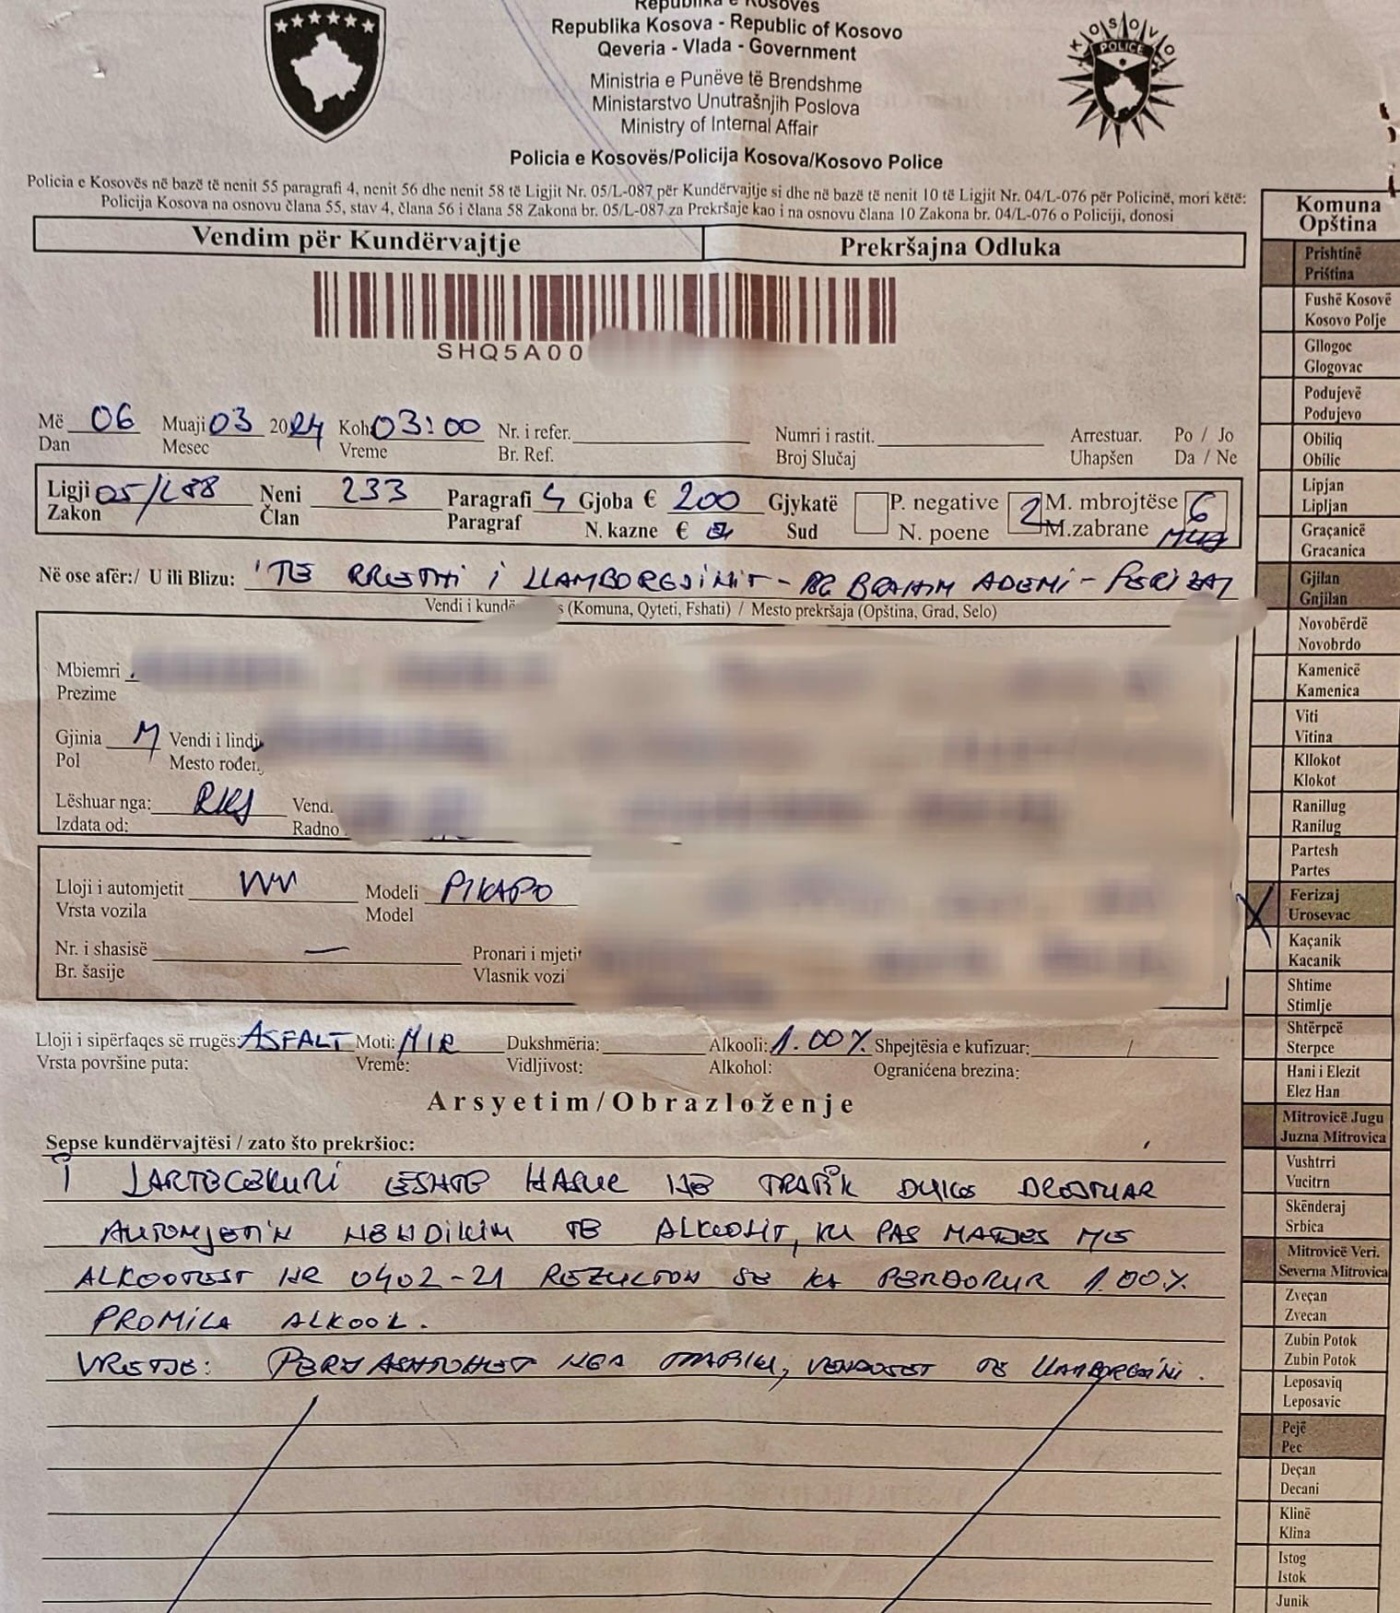 Republika e Kosovës
Republika Kosova - Republic of Kosovo
Qeveria - Vlada - Government
Ministria e Punëve të Brendshme
Ministarstvo Unutrašnjih Poslova
Ministry of Internal Affair
KOSOVO
POLICE
Policia e Kosovës/Policija Kosova/Kosovo Police
Policia e Kosovës në bazë të nenit 55 paragrafi 4, nenit 56 dhe nenit 58 të Ligjit Nr. 05/L-087 për Kundërvajtje si dhe në bazë të nenit 10 të Ligjit Nr. 04/L-076 për Policinë, mori këtë:
Policija Kosova na osnovu člana 55, stav 4, člana 56 i člana 58 Zakona br. 05/L-087 za Prekršaje kao i na osnovu člana 10 Zakona br. 04/L-076 o Policiji, donosi
Vendim për Kundërvajtje Prekršajna Odluka
SHQ5A00
Më 06 Muaji 03 2024 Koh 03:00 Nr. i refer. Numri i rastit. Arrestuar. Po / Jo
Dan Mesec Vreme Br. Ref. Broj Slučaj Uhapšen Da / Ne
Ligji 05/L88 Neni 233 Paragrafi 4 Gjoba € 200 Gjykatë P. negative 2 M. mbrojtëse 6
Zakon Član Paragraf N. kazne € Sud N. poene M.zabrane MUAJ
Në ose afër:/ U ili Blizu: TE RRETHI I LLAMBOREGJINIT - BRAHIM ADEMI - FERIZAJ
Vendi i kundë s (Komuna, Qyteti, Fshati) / Mesto prekršaja (Opština, Grad, Selo)
Mbiemri
Prezime
Gjinia M Vendi i lindj
Pol Mesto rođen.
Lëshuar nga: RKS Vend.
Izdata od: Radno
Lloji i automjetit VW Modeli PIKAPO
Vrsta vozila Model
Nr. i shasisë — Pronari i mjetit
Br. šasije Vlasnik vozi
Lloji i sipërfaqes së rrugës: ASFALT Moti: MIR Dukshmëria: Alkooli: 1.00% Shpejtësia e kufizuar: /
Vrsta površine puta: Vreme: Vidljivost: Alkohol: Ograničena brezina:
Arsyetim/Obrazloženje
Sepse kundërvajtësi / zato što prekršioc:
I LARTECEKURI ESHTE HASUR NE TRAFIK DUKE DREJTUAR
AUTOMJETIN NEN NDIKIM TE ALKOOLIT, KU PAS MATJES ME
ALKOOTEST NR 0402-21 REZULTON SE KA PERDORUR 1.00%
PROMILA ALKOOL.
VREJTJE: PERJASHTOHET NGA TRAFIKU, VENDOSET TE LLAMBOREGJINI.
Komuna
Opština
Prishtinë
Priština
Fushë Kosovë
Kosovo Polje
Gllogoc
Glogovac
Podujevë
Podujevo
Obiliq
Obilic
Lipjan
Lipljan
Graçanicë
Gracanica
Gjilan
Gnjilan
Novobërdë
Novobrdo
Kamenicë
Kamenica
Viti
Vitina
Kllokot
Klokot
Ranillug
Ranilug
Partesh
Partes
X Ferizaj
Urosevac
Kaçanik
Kacanik
Shtime
Stimlje
Shtërpcë
Sterpce
Hani i Elezit
Elez Han
Mitrovicë Jugu
Juzna Mitrovica
Vushtrri
Vucitrn
Skënderaj
Srbica
Mitrovicë Veri.
Severna Mitrovica
Zveçan
Zvecan
Zubin Potok
Zubin Potok
Leposaviq
Leposavic
Pejë
Pec
Deçan
Decani
Klinë
Klina
Istog
Istok
Junik